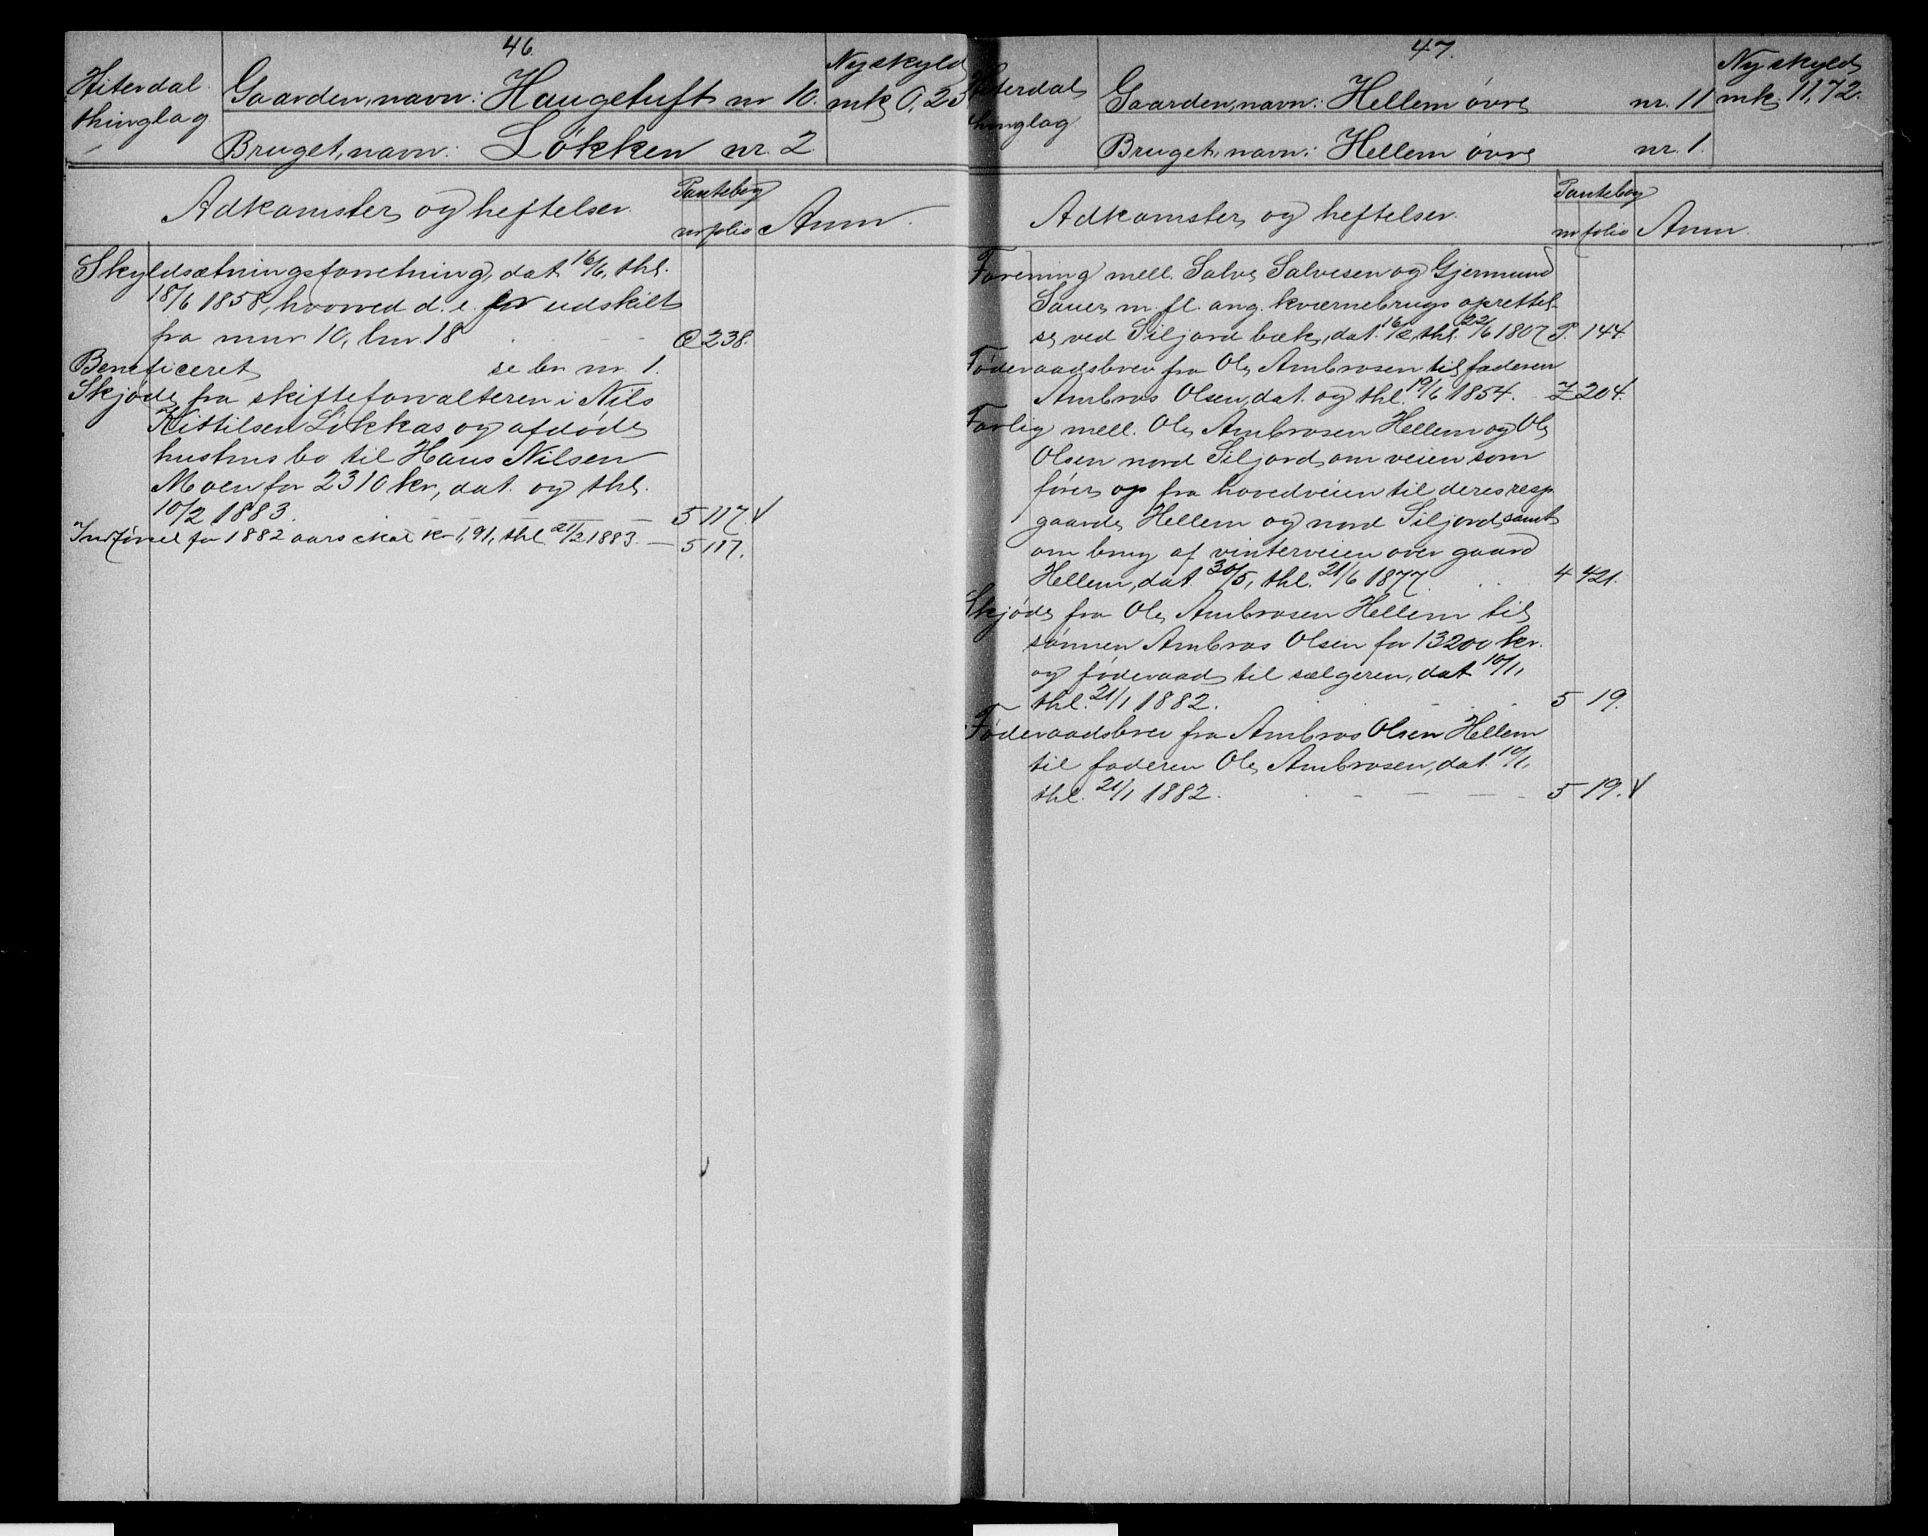 46.
Hiterdal
thinglag
Gaardens navn: Haugetuft nr 10.
Brugets navn: Løkken nr. 2
Nyskyld
mk 0,23
Adkomster og heftelser.
Pantebog
nr folio
Anm.
Skyldsætningsforretning, dat 16/6, thl.
18/6 1858, hvorved d. e. er udskilt
fra mnr 10, lnr. 18 @ 238.
Beneficeret se br nr 1.
Skjøde fra skifteforvalteren i Nils
Kittilsen Løkkas og afdøde
hustrus bo til Hans Nilsen
Moen for 2310 kr, dat. og thl.
10/2 1883. 5 117. √
Indførsel for 1882 aars skat kr 1,91, thl. 21/2 1883. — 5 117.
47.
Hiterdal
thinglag
Gaardens navn: Hellem øvre nr. 11
Brugets navn: Hellem øvre nr. 1.
Nyskyld
mk 11,72.
Adkomster og heftelser.
Pantebog
nr folio
Anm.
Forening mell. Salve Salvesen og Gjermund
Sauer m. fl. ang. kværnebrugs oprettel-
se ved Siljord bæk, dat. 16/2, thl. 22/6 1807 P. 144.
Føderaadsbrev fra Ole Ambrosen til faderen
Ambros Olsen, dat. og thl. 19/6 1854. Z 204.
Forlig mell. Ole Ambrosen Hellem og Ole
Olsen nord Siljord om veien som
fører op fra hovedveien til deres resp.
gaarde Hellem og nord Siljord samt
om brug af vinterveien over gaard
Hellem, dat. 30/5, thl. 21/6 1877. 4 421.
Skjøde fra Ole Ambrosen Hellem til
sønnen Ambros Olsen for 13200 kr.
og føderaad til sælgeren, dat 10/1,
thl. 21/1 1882. 5 19.
Føderaadsbrev fra Ambros Olsen Hellem
til faderen Ole Ambrosen, dat. 10/1,
thl. 21/1 1882. 5 19. √